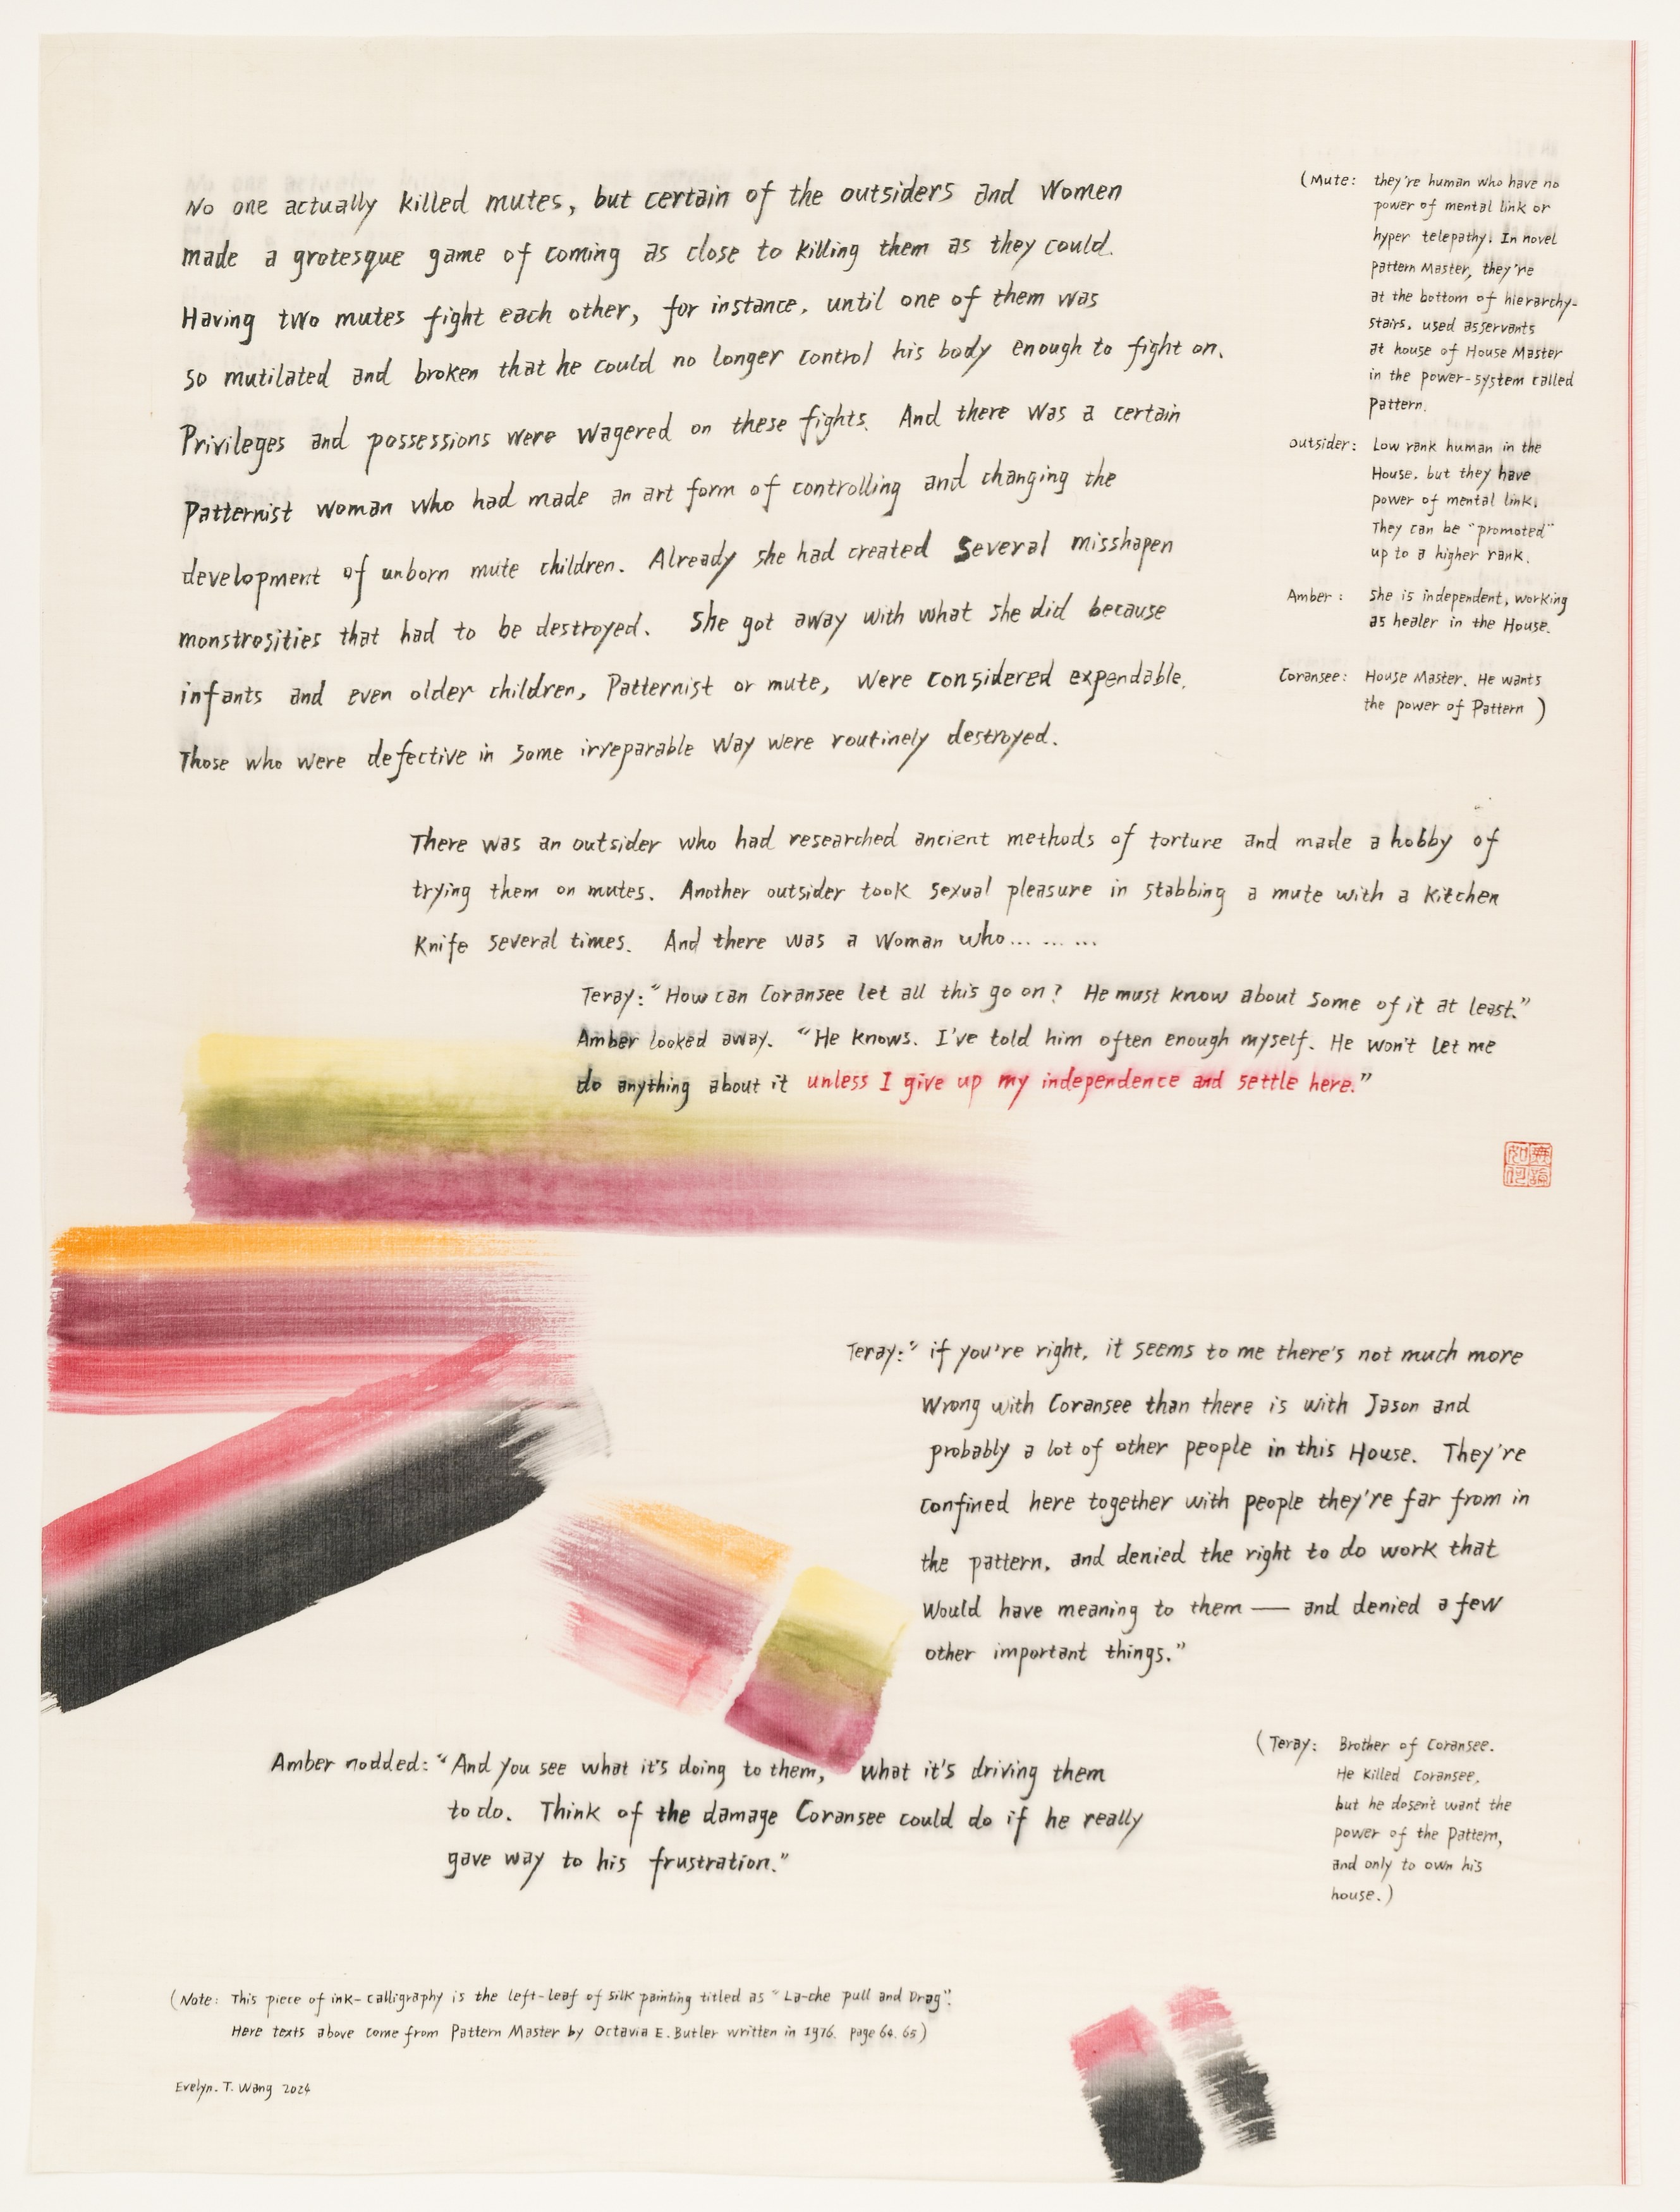 No one actually killed mutes, but certain of the outsiders and women
made a grotesque game of coming as close to killing them as they could.
Having two mutes fight each other, for instance, until one of them was
so mutilated and broken that he could no longer control his body enough to fight on.
Privileges and possessions were wagered on these fights. And there was a certain
Patternist woman who had made an art form of controlling and changing the
development of unborn mute children. Already she had created several misshapen
monstrosities that had to be destroyed. She got away with what she did because
infants and even older children, Patternist or mute, were considered expendable.
Those who were defective in some irreparable way were routinely destroyed.
(Mute: they're human who have no
power of mental link or
hyper telepathy. In novel
pattern Master, they're
at the bottom of hierarchy-
stairs, used asservants
at house of House Master
in the power-system called
pattern.
outsider: Low rank human in the
House, but they have
power of mental link.
They can be "promoted"
up to a higher rank.
Amber: she is independent, working
as healer in the House.
Coransee: House Master. He wants
the power of Pattern)
There was an outsider who had researched ancient methods of torture and made a hobby of
trying them on mutes. Another outsider took sexual pleasure in stabbing a mute with a kitchen
knife several times. And there was a woman who... ... ...
Teray: "How can Coransee let all this go on? He must know about some of it at least."
Amber looked away. "He knows. I've told him often enough myself. He won't let me
do anything about it unless I give up my independence and settle here."
Teray: "if you're right, it seems to me there's not much more
wrong with Coransee than there is with Jason and
probably a lot of other people in this House. They're
confined here together with people they're far from in
the pattern, and denied the right to do work that
would have meaning to them — and denied a few
other important things."
Amber nodded: "And you see what it's doing to them, what it's driving them
to do. Think of the damage Coransee could do if he really
gave way to his frustration."
(Teray: Brother of Coransee.
He killed Coransee,
but he dosen't want the
power of the Pattern,
and only to own his
house.)
(Note: This piece of ink-calligraphy is the left-leaf of silk painting titled as "La-che pull and Drag".
Here texts above come from Pattern Master by Octavia E. Butler written in 1976. page 64. 65)
Evelyn. T. Wang 2024